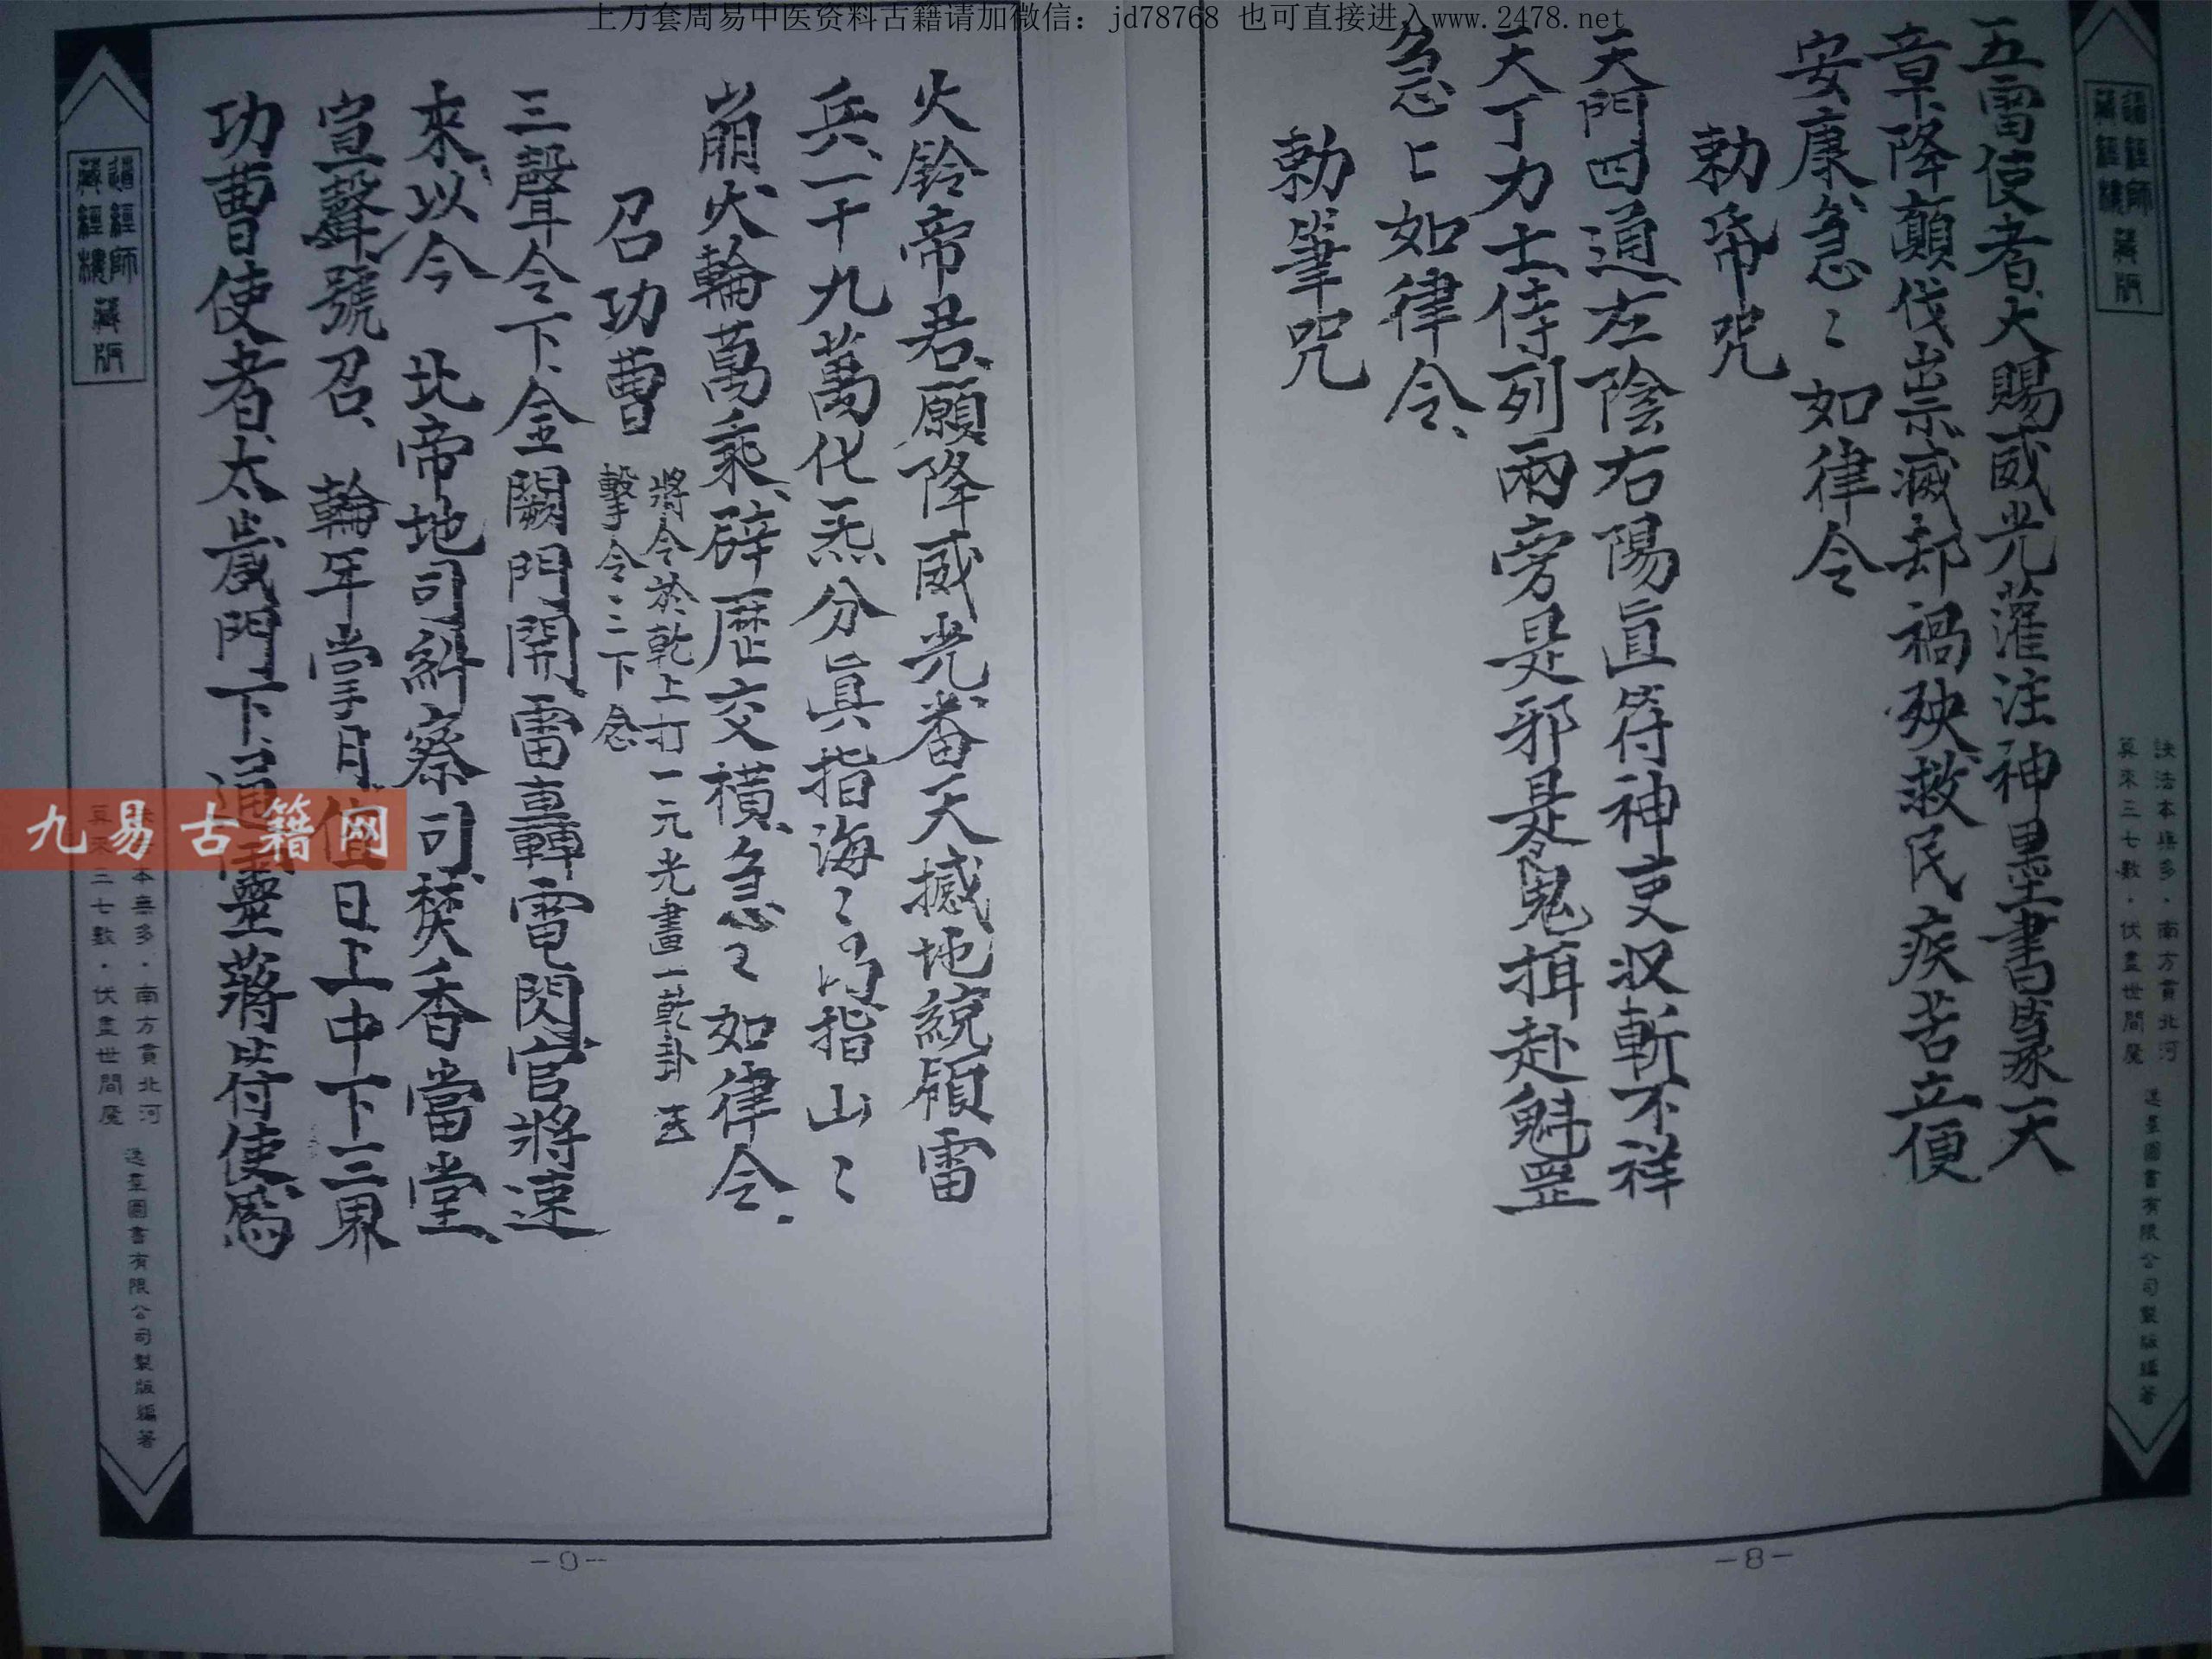 上万套周易中医资料古籍请加微信：jd78768 也可直接进入www.2478.net
五雷使者、大賜威光灌注神墨書篆天
章、降顛伐祟滅却禍殃救民疾苦立便
安康、急〻如律令
勅帋咒
天門四道左陰右陽直符神吏収斬不祥
天丁力士侍列兩旁是邪是鬼揖赴魁罡
急〻如律令、
勅筆咒
火鈴帝君、願降威光、番天撼地統領雷
兵、一十九萬化炁分眞指海〻指山〻
崩火輪萬乘、辟歷交橫、急〻如律令、
召功曹
將令於乾上打一元光畫一乾卦
擊令三下念
三聲令下、金闕門開雷轟電閃、官將速
來、以今 北帝地司糾察司、焚香當堂、
宣聲號召、輪年掌月值日上中下三界
功曹使者、太歲門下、通靈符使
道經師
藏經樓
藏版
訣法本無多·南方貫北河
算來三七數·伏盡世間魔
逸羣圖書有限公司製版編著
九易古籍网
-8-
-9-